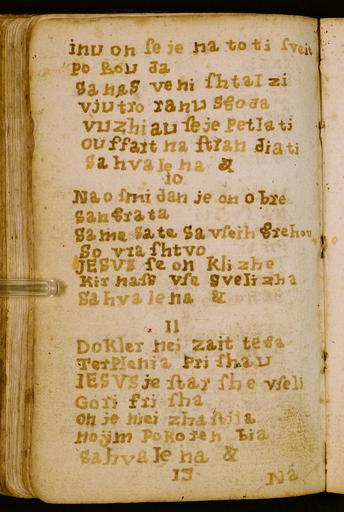 inu on ſe je na to ti ſveit
po Bou da
Sa nas ve ni ſhtal zi
vju tro ranu Sgoda
vuzhiau ſe je petla ti
ouſſart na ſtran djati
Sa hva le na &
10
Na oſmi dan je on o bre
San brata
Sama Sa te Sa vſeih Grehou
So vra ſhtvo
JESVS ſe on Kli zhe
Kir naſs vſe Sveli zha
Sa hva le na &
11
Do Kler nei zait te ga
Ter Plenia Pri ſhau
IESVS je ſtar ſhe vſeli
Gori ſri ſha
on je niei zha ſtjla
nojim Po Koren bia
Sa hva le na &
13
Na